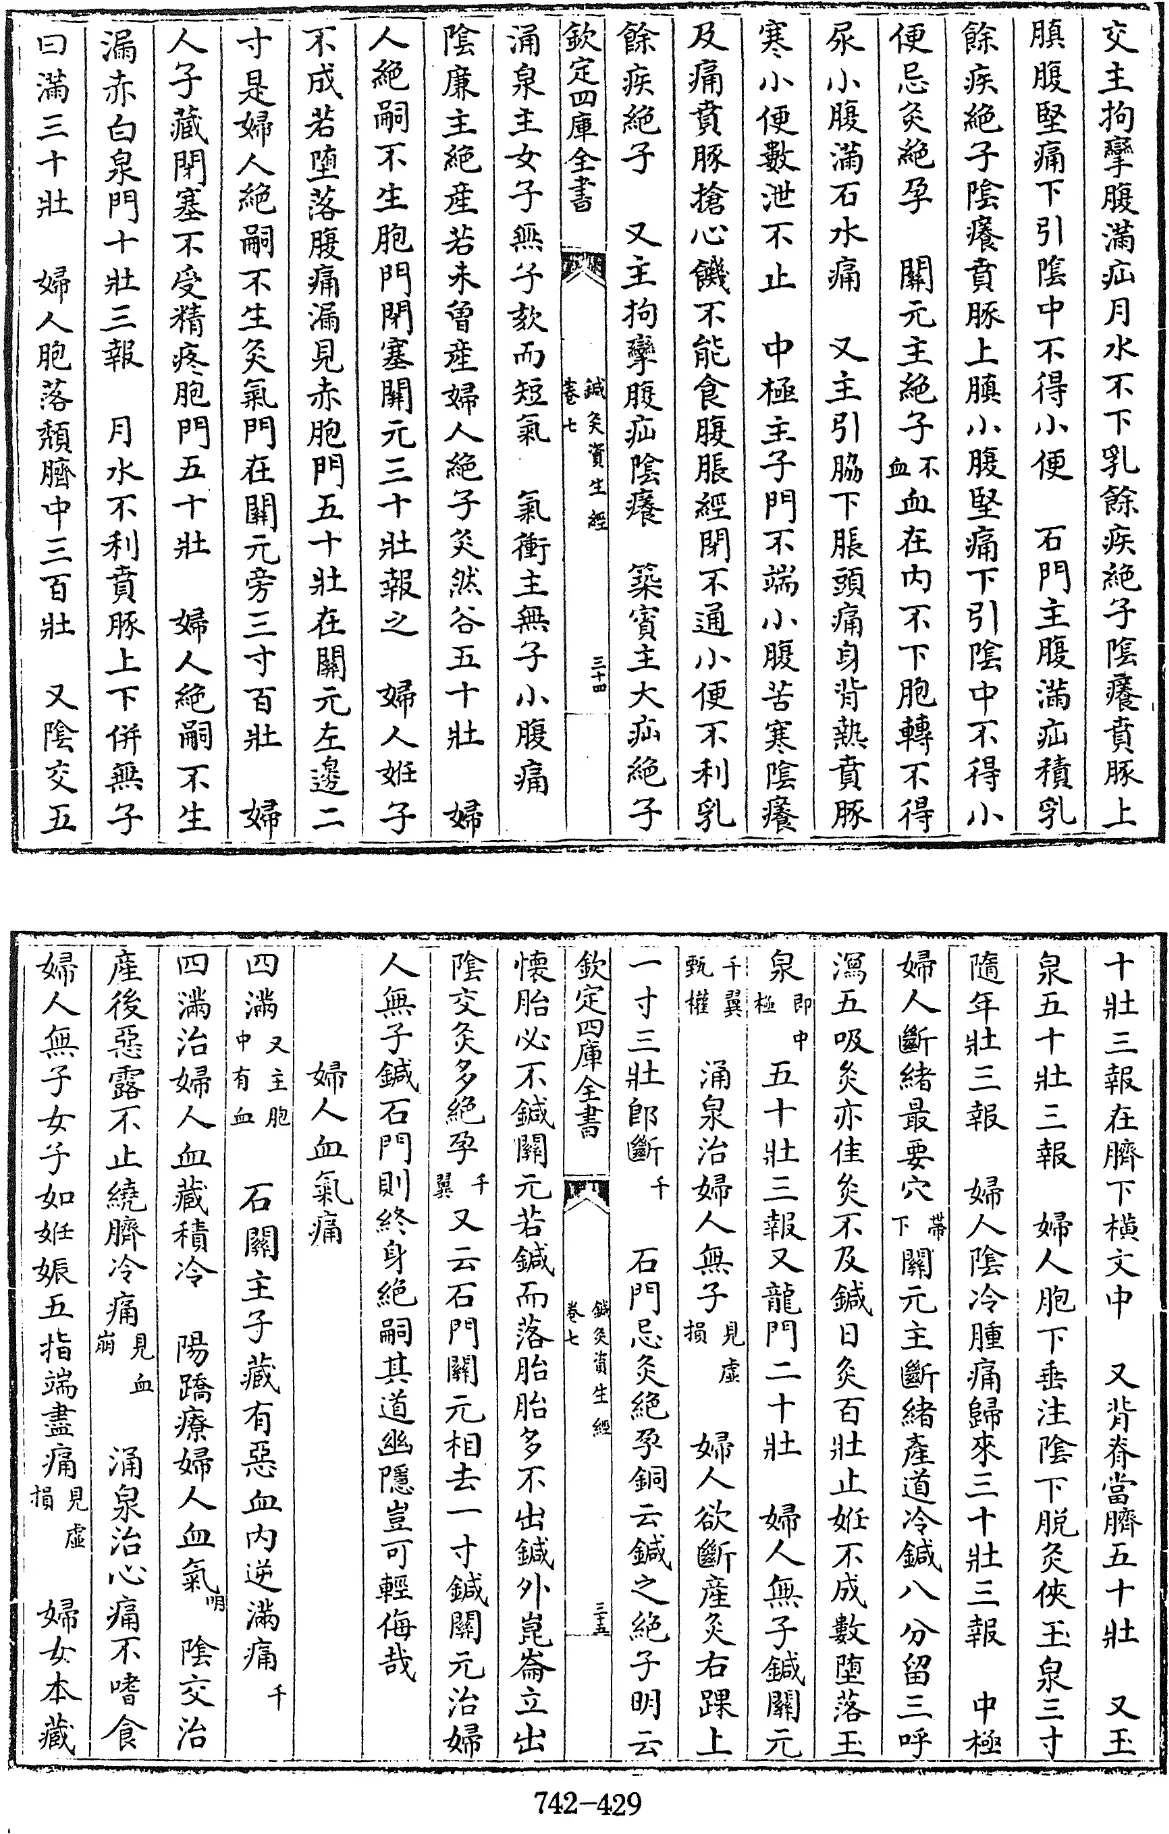 交主拘攣腹滿疝月水不下乳餘疾絶子陰癢賁豚上
䐜腹堅痛下引陰中不得小便　石門主腹滿疝積乳
餘疾絶子陰癢賁豚上䐜小腹堅痛下引陰中不得小
便忌灸絶孕　關元主絶子不血血在内不下胞轉不得
尿小腹滿石水痛　又主引脇下脹頭痛身背熱賁豚
寒小便數泄不止　中極主子門不端小腹苦寒陰癢
及痛賁豚搶心饑不能食腹脹經閉不通小便不利乳
餘疾絶子　又主拘攣腹疝陰癢　築賓主大疝絶子
欽定四庫全書　鍼灸資生經卷七　三十四
涌泉主女子無子欬而短氣　氣衝主無子小腹痛
陰廉主絶産若未曾産婦人絶子灸然谷五十壯　婦
人絶嗣不生胞門閉塞關元三十壯報之　婦人姙子
不成若墮落腹痛漏見赤胞門五十壯在關元左邊二
寸是婦人絶嗣不生灸氣門在關元旁三寸百壯　婦
人子藏閉塞不受精疼胞門五十壯　婦人絶嗣不生
漏赤白泉門十壯三報　月水不利賁豚上下併無子
曰滿三十壯　婦人胞落頽臍中三百壯　又陰交五
十壯三報在臍下横文中　又背脊當臍五十壯　又玉
泉五十壯三報　婦人胞下垂注陰下脱灸俠玉泉三寸
隨年壯三報　婦人陰冷腫痛歸來三十壯三報　中極
婦人斷緒最要穴帶下關元主斷緒産道冷鍼八分留三呼
瀉五吸灸亦佳灸不及鍼日灸百壯止姙不成數墮落玉
泉即中極五十壯三報又龍門二十壯　婦人無子鍼關元
千翼甄權　涌泉治婦人無子見虛損　婦人欲斷産灸右踝上
一寸三壯即斷千　石門忌灸絶孕銅云鍼之絶子明云
欽定四庫全書　鍼灸資生經卷七　三十五
懷胎必不鍼關元若鍼而落胎胎多不出鍼外崑崙立出
陰交灸多絶孕千翼又云石門關元相去一寸鍼關元治婦
人無子鍼石門則終身絶嗣其道幽隱豈可輕侮哉
婦人血氣痛
四滿又主胞中有血　石關主子藏有惡血内逆滿痛千
四滿治婦人血藏積冷　陽蹻療婦人血氣明　陰交治
産後惡露不止繞臍冷痛見血崩　涌泉治心痛不嗜食
婦人無子女子如姙娠五指端盡痛見虛損　婦女本藏
742-429